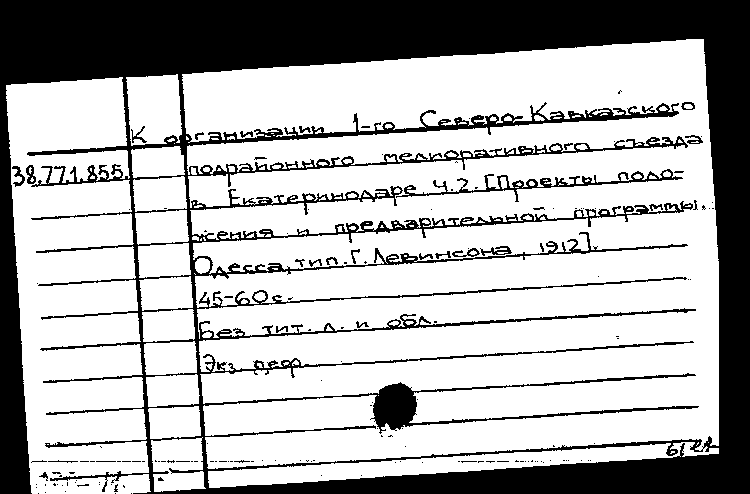 К организации 1-го Северо-Кавказского
38.77.1.855. подрайонного мелиоративного съезда
в Екатеринодаре ч.2. [Проекты поло-
жения и предварительной программы.
Одесса, тип. Г. Левинсона, 1912].
45-60 с.
Без тит. л. и обл.
Экз. деф.